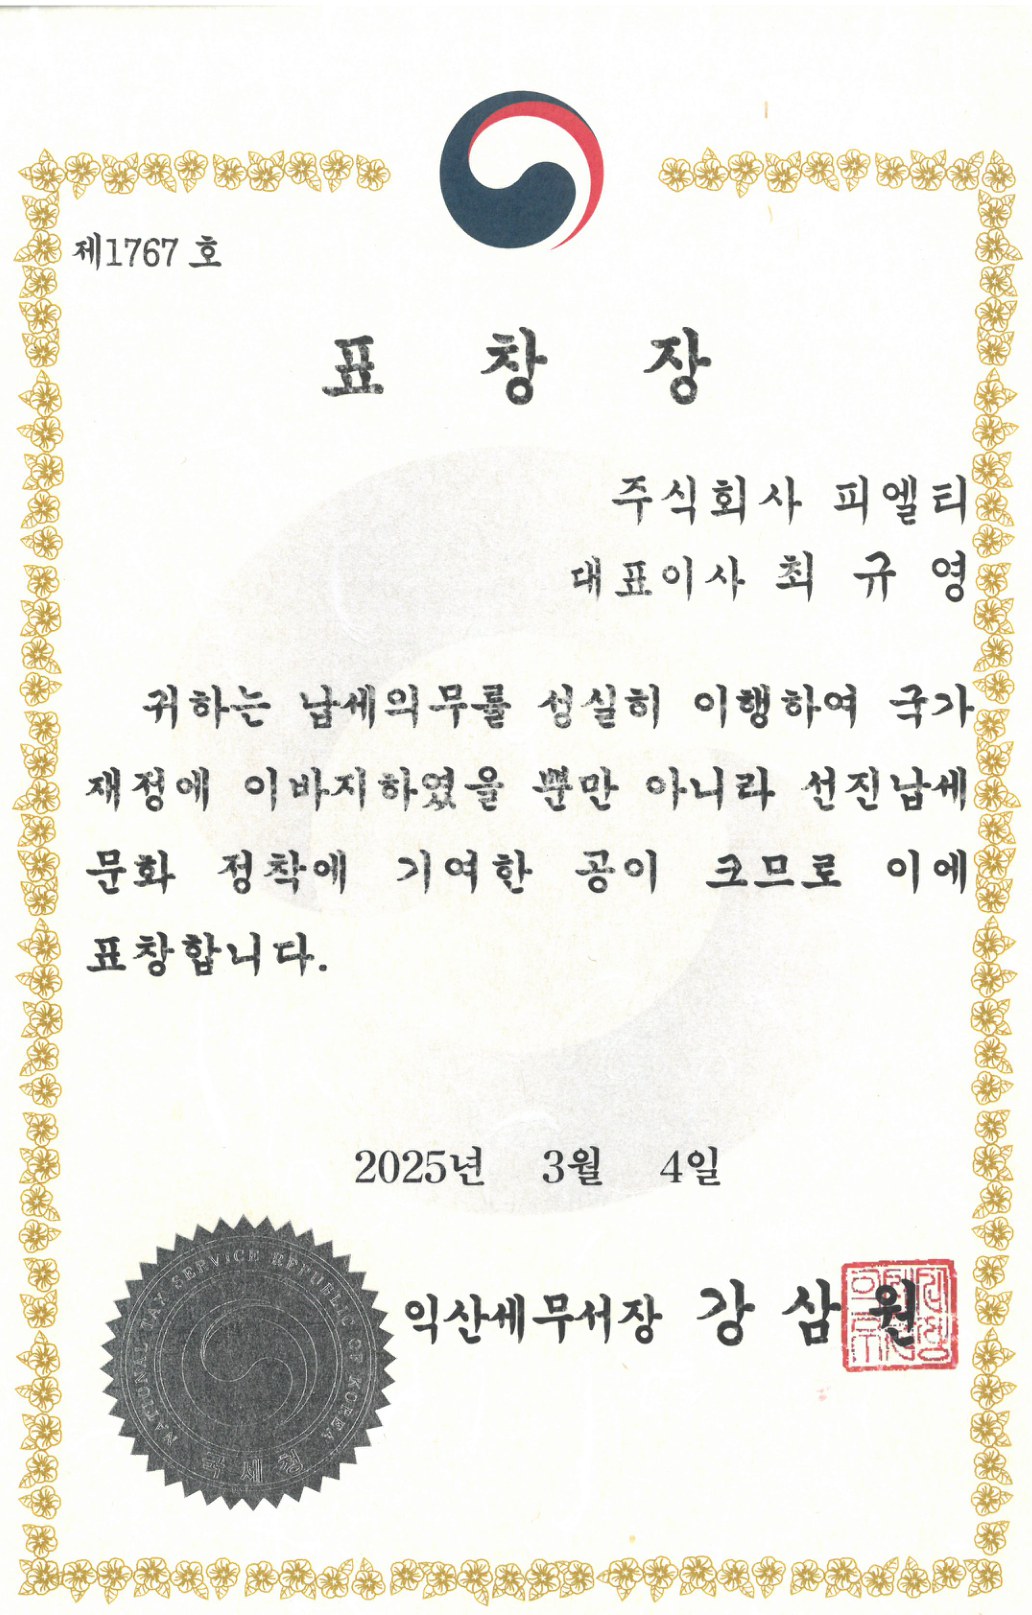 제1767 호
표 창 장
주식회사 피엘티
대표이사 최 규 영
귀하는 납세의무를 성실히 이행하여 국가
재정에 이바지하였을 뿐만 아니라 선진납세
문화 정착에 기여한 공이 크므로 이에
표창합니다.
2025년 3월 4일
익산세무서장 강 삼 원
NATIONAL TAX SERVICE REPUBLIC OF KOREA
국세청